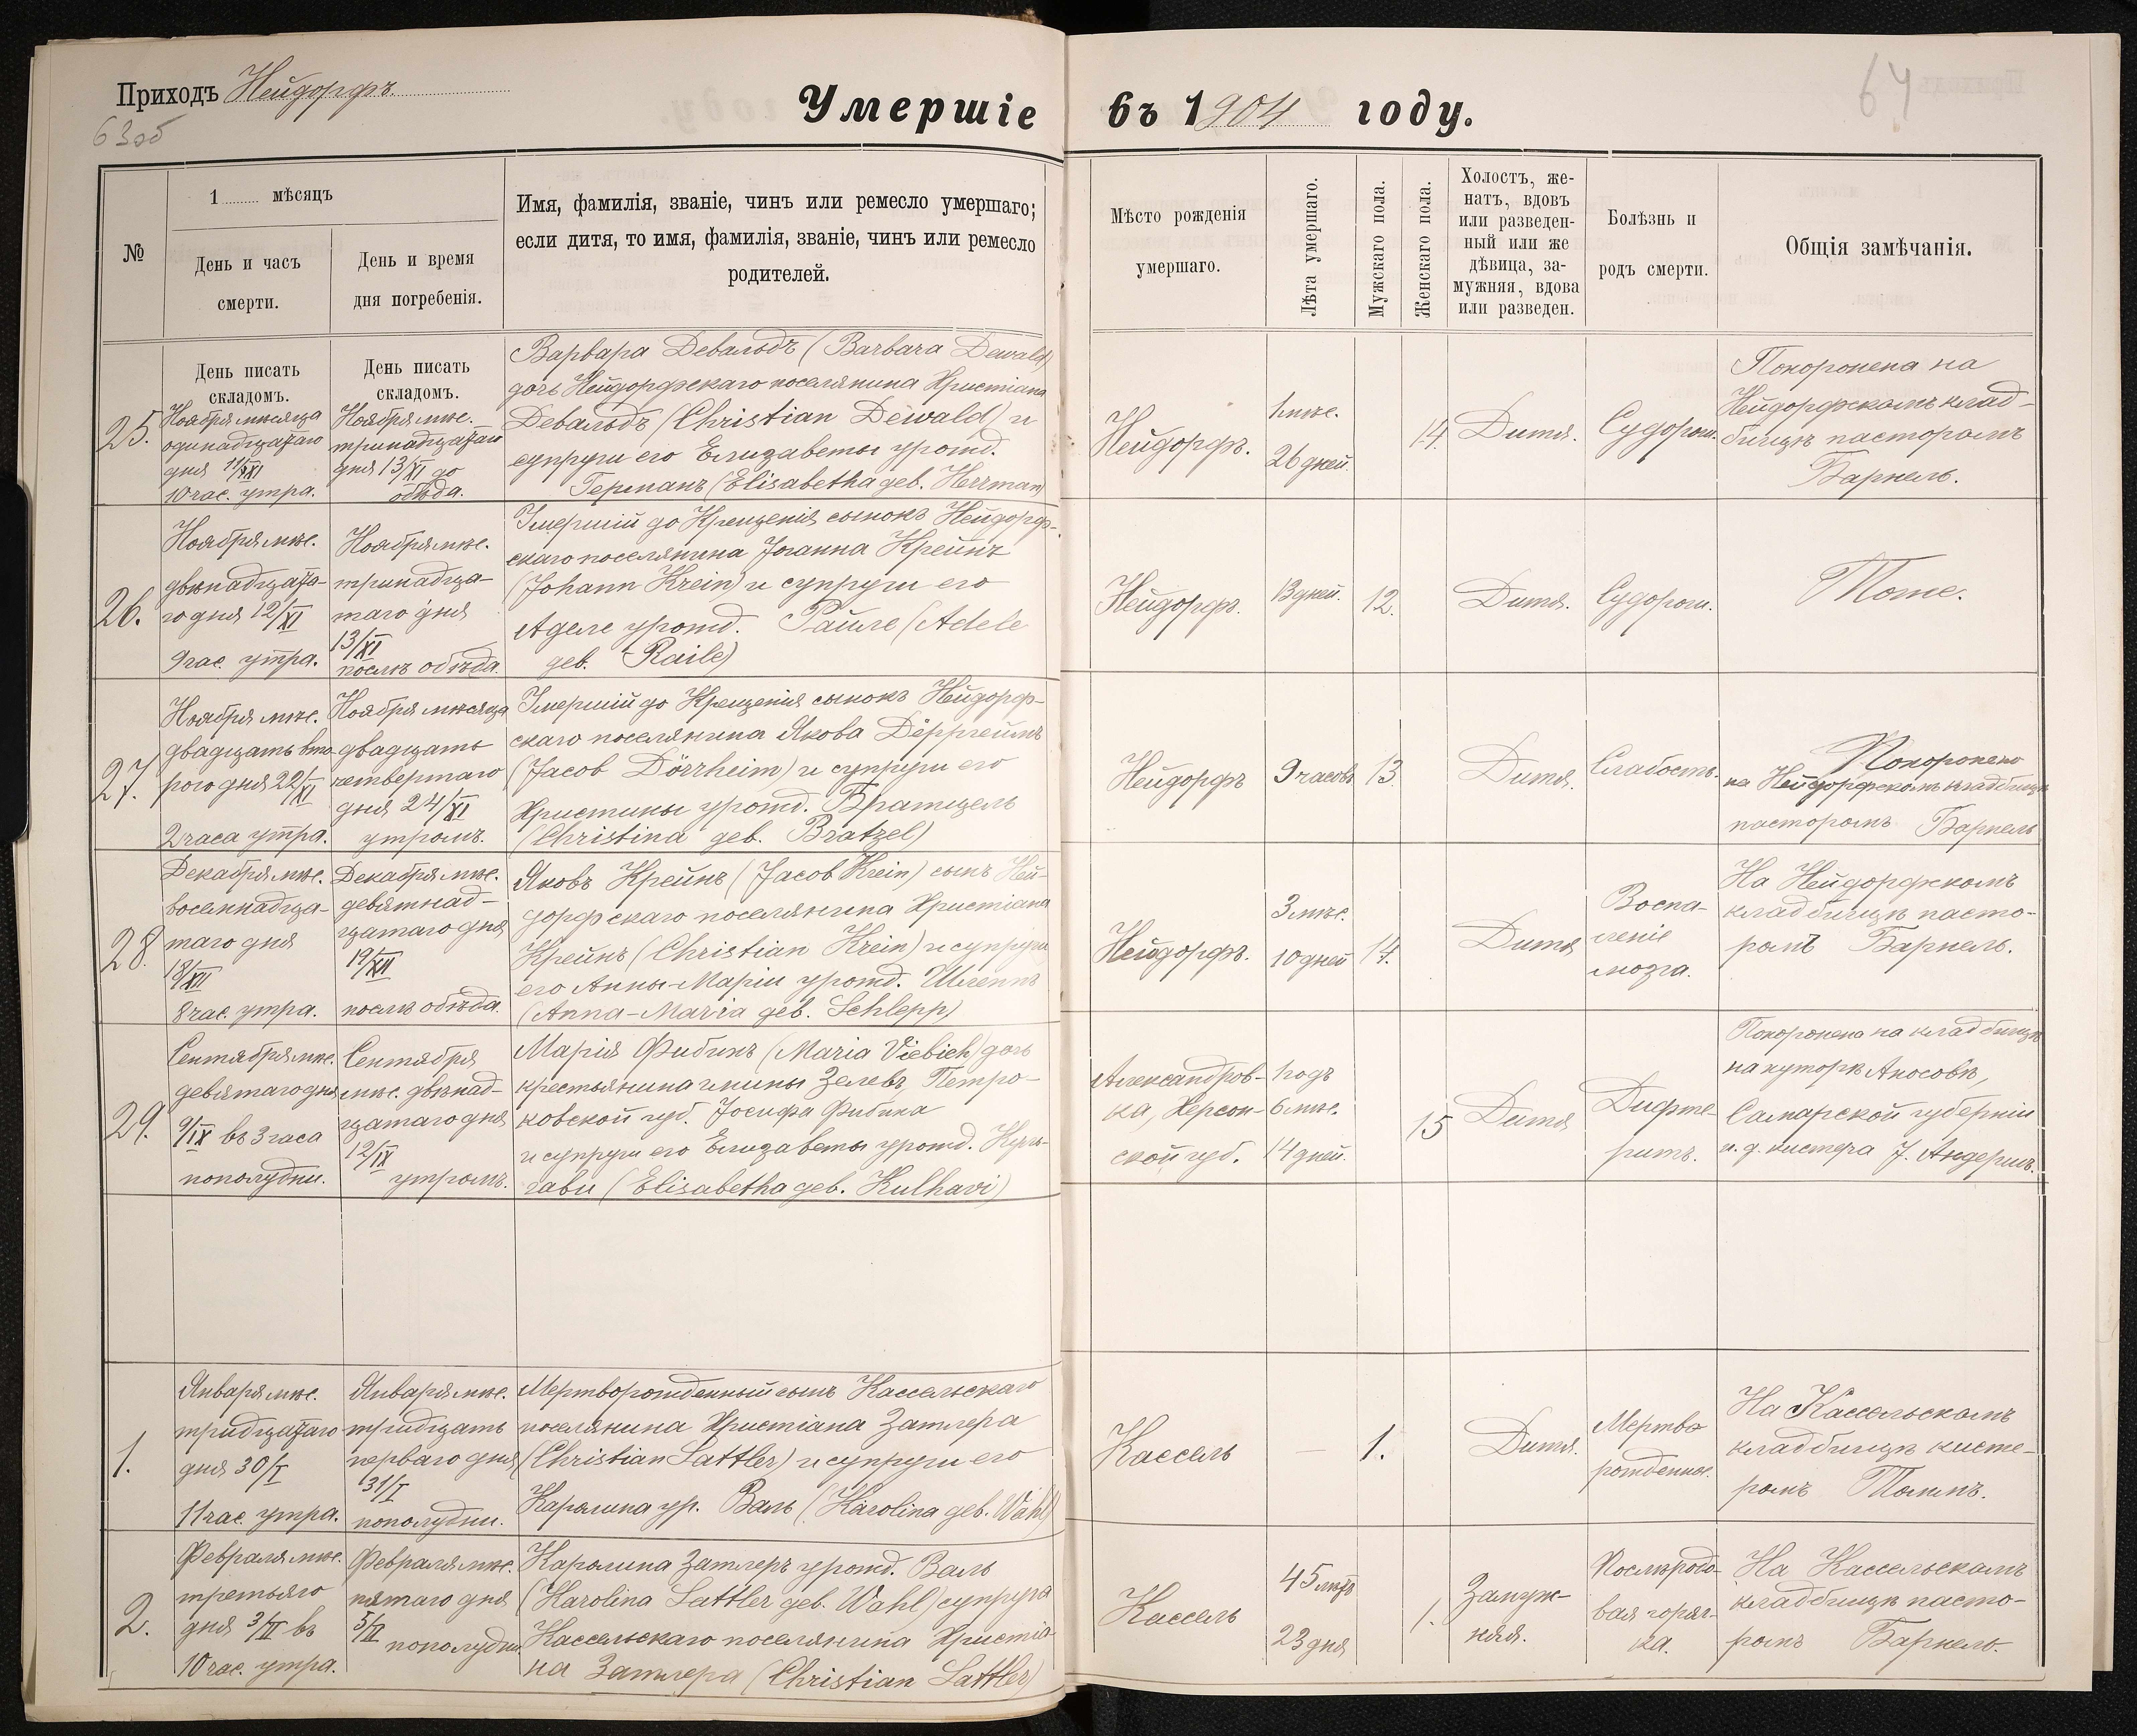 Приходъ Нейдорфъ
63об
Умершіе въ 1904 году.
64
№
1 мѣсяцъ
День и часъ
смерти.
День и время
дня погребенія.
Имя, фамилія, званіе, чинъ или ремесло умершаго;
если дитя, то имя, фамилія, званіе, чинъ или ремесло
родителей.
Мѣсто рожденія
умершаго.
Лѣта умершаго.
Мужскаго пола.
Женскаго пола.
Холостъ, же-
натъ, вдовъ
или разведен-
ный или же
дѣвица, за-
мужняя, вдова
или разведен.
Болѣзнь и
родъ смерти.
Общія замѣчанія.
День писать
складомъ.
День писать
складомъ.
25.
Ноября мѣсяца
одинадцатаго
дня 11/XI
10 час. утра.
Ноября мѣс.
тринадцатаго
дня 13/XI до
обѣда.
Варвара Девальдъ (Barbara Dewald)
дочь Нейдорфскаго поселянина Христіана
Девальдъ (Christian Dewald) и
супруги его Елизаветы урожд.
Германъ (Elisabetha geb. Herrman)
Нейдорфъ.
1 мѣс.
26 дней.
14.
Дитя.
Судороги.
Похоронена на
Нейдорфскомъ клад-
бищѣ пасторомъ
Барнель.
26.
Ноября мѣс.
двѣнадцата-
го дня 12/XI
9 час. утра.
Ноября мѣс.
тринадца-
таго дня
13/XI
послѣ обѣда.
Умершій до Крещенія сынокъ Нейдорф-
скаго поселянина Іоганна Крейнъ
(Johann Krein) и супруги его
Аделе урожд. Райле (Adele
geb. Raile)
Нейдорфъ.
13 дней.
12.
Дитя.
Судороги.
Тоже.
27.
Ноября мѣс.
двадцать вто-
рого дня 22/XI
2 часа утра.
Ноября мѣсяца
двадцать
четвертаго
дня 24/XI
утромъ.
Умершій до Крещенія сынокъ Нейдорф-
скаго поселянина Якова Дёрргеймъ
(Jacob Dörrheim) и супруги его
Христины урожд. Братцель
(Christina geb. Bratzel)
Нейдорфъ
9 часовъ
13
Дитя.
Слабость.
Похоронено
на Нейдорфскомъ кладбищѣ
пасторомъ Барнель
28.
Декабря мѣс.
восемнадца-
таго дня
18/XII
8 час. утра.
Декабря мѣс.
девятнад-
цатаго дня
19/XII
послѣ обѣда.
Яковъ Крейнъ (Jacob Krein) сынъ Ней-
дорфскаго поселянина Христіана
Крейнъ (Christian Krein) и супруги
его Анны-Маріи урожд. Шлеппъ
(Anna-Maria geb. Schlepp)
Нейдорфъ.
3 мѣс.
10 дней
14.
Дитя
Воспа-
леніе
мозга.
На Нейдорфскомъ
кладбищѣ пасто-
ромъ Барнель.
29.
Сентября мѣс.
девятаго дня
9/IX въ 3 часа
пополудни.
Сентября
мѣс. двѣнад-
цатаго дня
12/IX
утромъ.
Марія Фибихъ (Maria Viebich) дочь
крестьянина гмины Зелевъ, Петро-
ковской губ. Іосифа Фибиха
и супруги его Елизаветы урожд. Куль-
гави (Elisabetha geb. Kulhavi)
Александров-
ка, Херсон-
ской губ.
1 годъ
6 мѣс.
14 дней.
15
Дитя
Дифте-
ритъ.
Похоронена на кладбищѣ
на хуторѣ Аносовѣ,
Самарской губерніи
и. д. кистера J. Андершъ.
1.
Января мѣс.
тридцатаго
дня 30/I
11 час. утра.
Января мѣс.
тридцать
перваго дня
31/I
пополудни.
Мертворожденный сынъ Кассельскаго
поселянина Христіана Затлера
(Christian Sattler) и супруги его
Каролина ур. Валь (Karolina geb. Wahl)
Кассель
—
1.
Дитя.
Мертво
рожденное.
На Кассельскомъ
кладбищѣ кисте-
ромъ Томмъ.
2.
Февраля мѣс.
третьяго
дня 3/II въ
10 час. утра.
Февраля мѣс.
пятаго дня
5/II
пополудни.
Каролина Затлеръ урожд. Валь
(Karolina Sattler geb. Wahl) супруга
Кассельскаго поселянина Христіа-
на Затлера (Christian Sattler)
Кассель
45 лѣтъ
23 дня
1.
Замуж-
няя.
Послѣродо-
вая горяч-
ка.
На Кассельскомъ
кладбищѣ пасто-
ромъ Барнель.